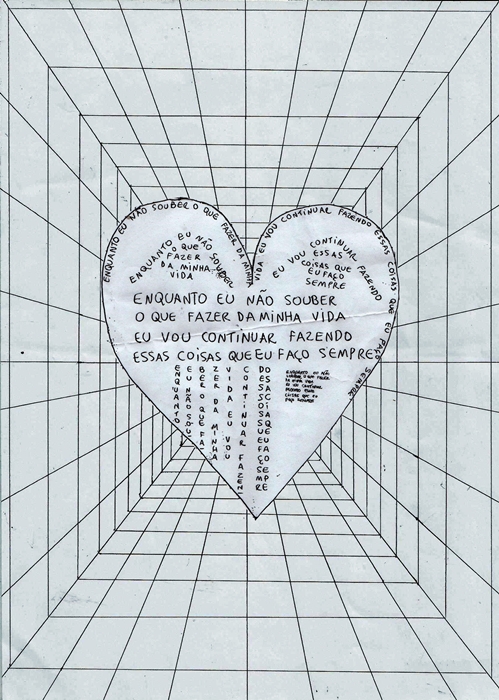 ENQUANTO EU NÃO SOUBER O QUE FAZER DA MINHA VIDA EU VOU CONTINUAR FAZENDO ESSAS COISAS QUE EU FAÇO SEMPRE
ENQUANTO EU NÃO SOUBER
O QUE
FAZER
DA MINHA
VIDA
EU VOU CONTINUAR FAZENDO
ESSAS
COISAS QUE
EU FAÇO
SEMPRE
ENQUANTO EU NÃO SOUBER
O QUE FAZER DA MINHA VIDA
EU VOU CONTINUAR FAZENDO
ESSAS COISAS QUE EU FAÇO SEMPRE
ENQUANTO
EU NÃO SOU
BER O QUE FA
ZER DA MINHA
VIDA EU VOU
CONTINUAR FAZEN
DO ESSAS COISAS QUE EU FAÇO SEMPRE
ENQUANTO EU NÃO
SOUBER O QUE FAZER
DA MINHA VIDA
EU VOU CONTINUAR